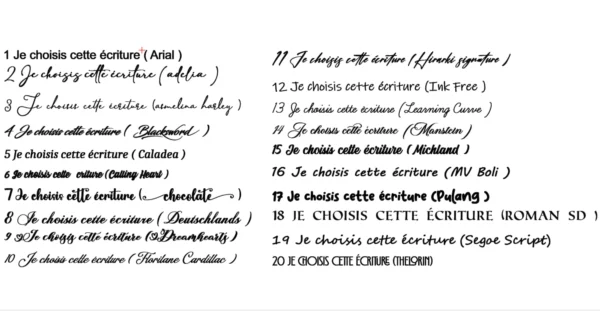 1 Je choisis cette écriture ( Arial )
2 Je choisis cette écriture ( adelia )
3 Je choisis cette écriture (amelina harley )
4 Je choisis cette écriture ( Blacksword )
5 Je choisis cette écriture ( Caladea )
6 Je choisis cette criture (Calling Heart )
7 Je choisis cette écriture ( chocolate )
8 Je choisis cette écriture ( Deutschlands )
9 Je choisis cette écriture (Dreamhearts )
10 Je choisis cette écriture ( Florilane Cardillac )
11 Je choisis cette écriture (Hirarki signature )
12 Je choisis cette écriture (Ink Free )
13 Je choisis cette écriture (Learning Curve )
14 Je choisis cette écriture (Manstein )
15 Je choisis cette écriture ( Michland )
16 Je choisis cette écriture (MV Boli )
17 Je choisis cette écriture (Pulang )
18 JE CHOISIS CETTE ÉCRITURE (ROMAN SD )
19 Je choisis cette écriture (Segoe Script)
20 JE CHOISIS CETTE ÉCRITURE (THELORIN)